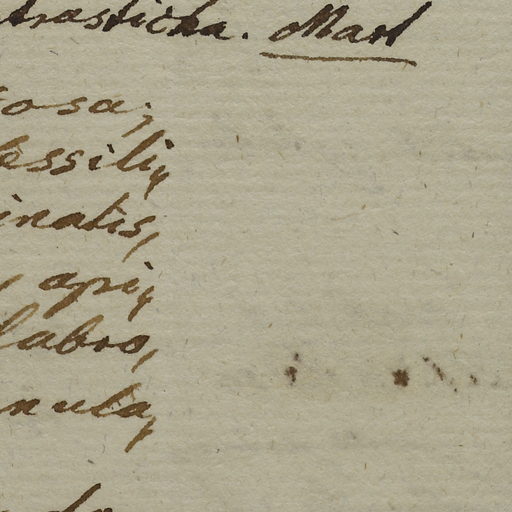 trasticha. Mart
osa,
essili,
inatis,
, api,
labro,
nula,